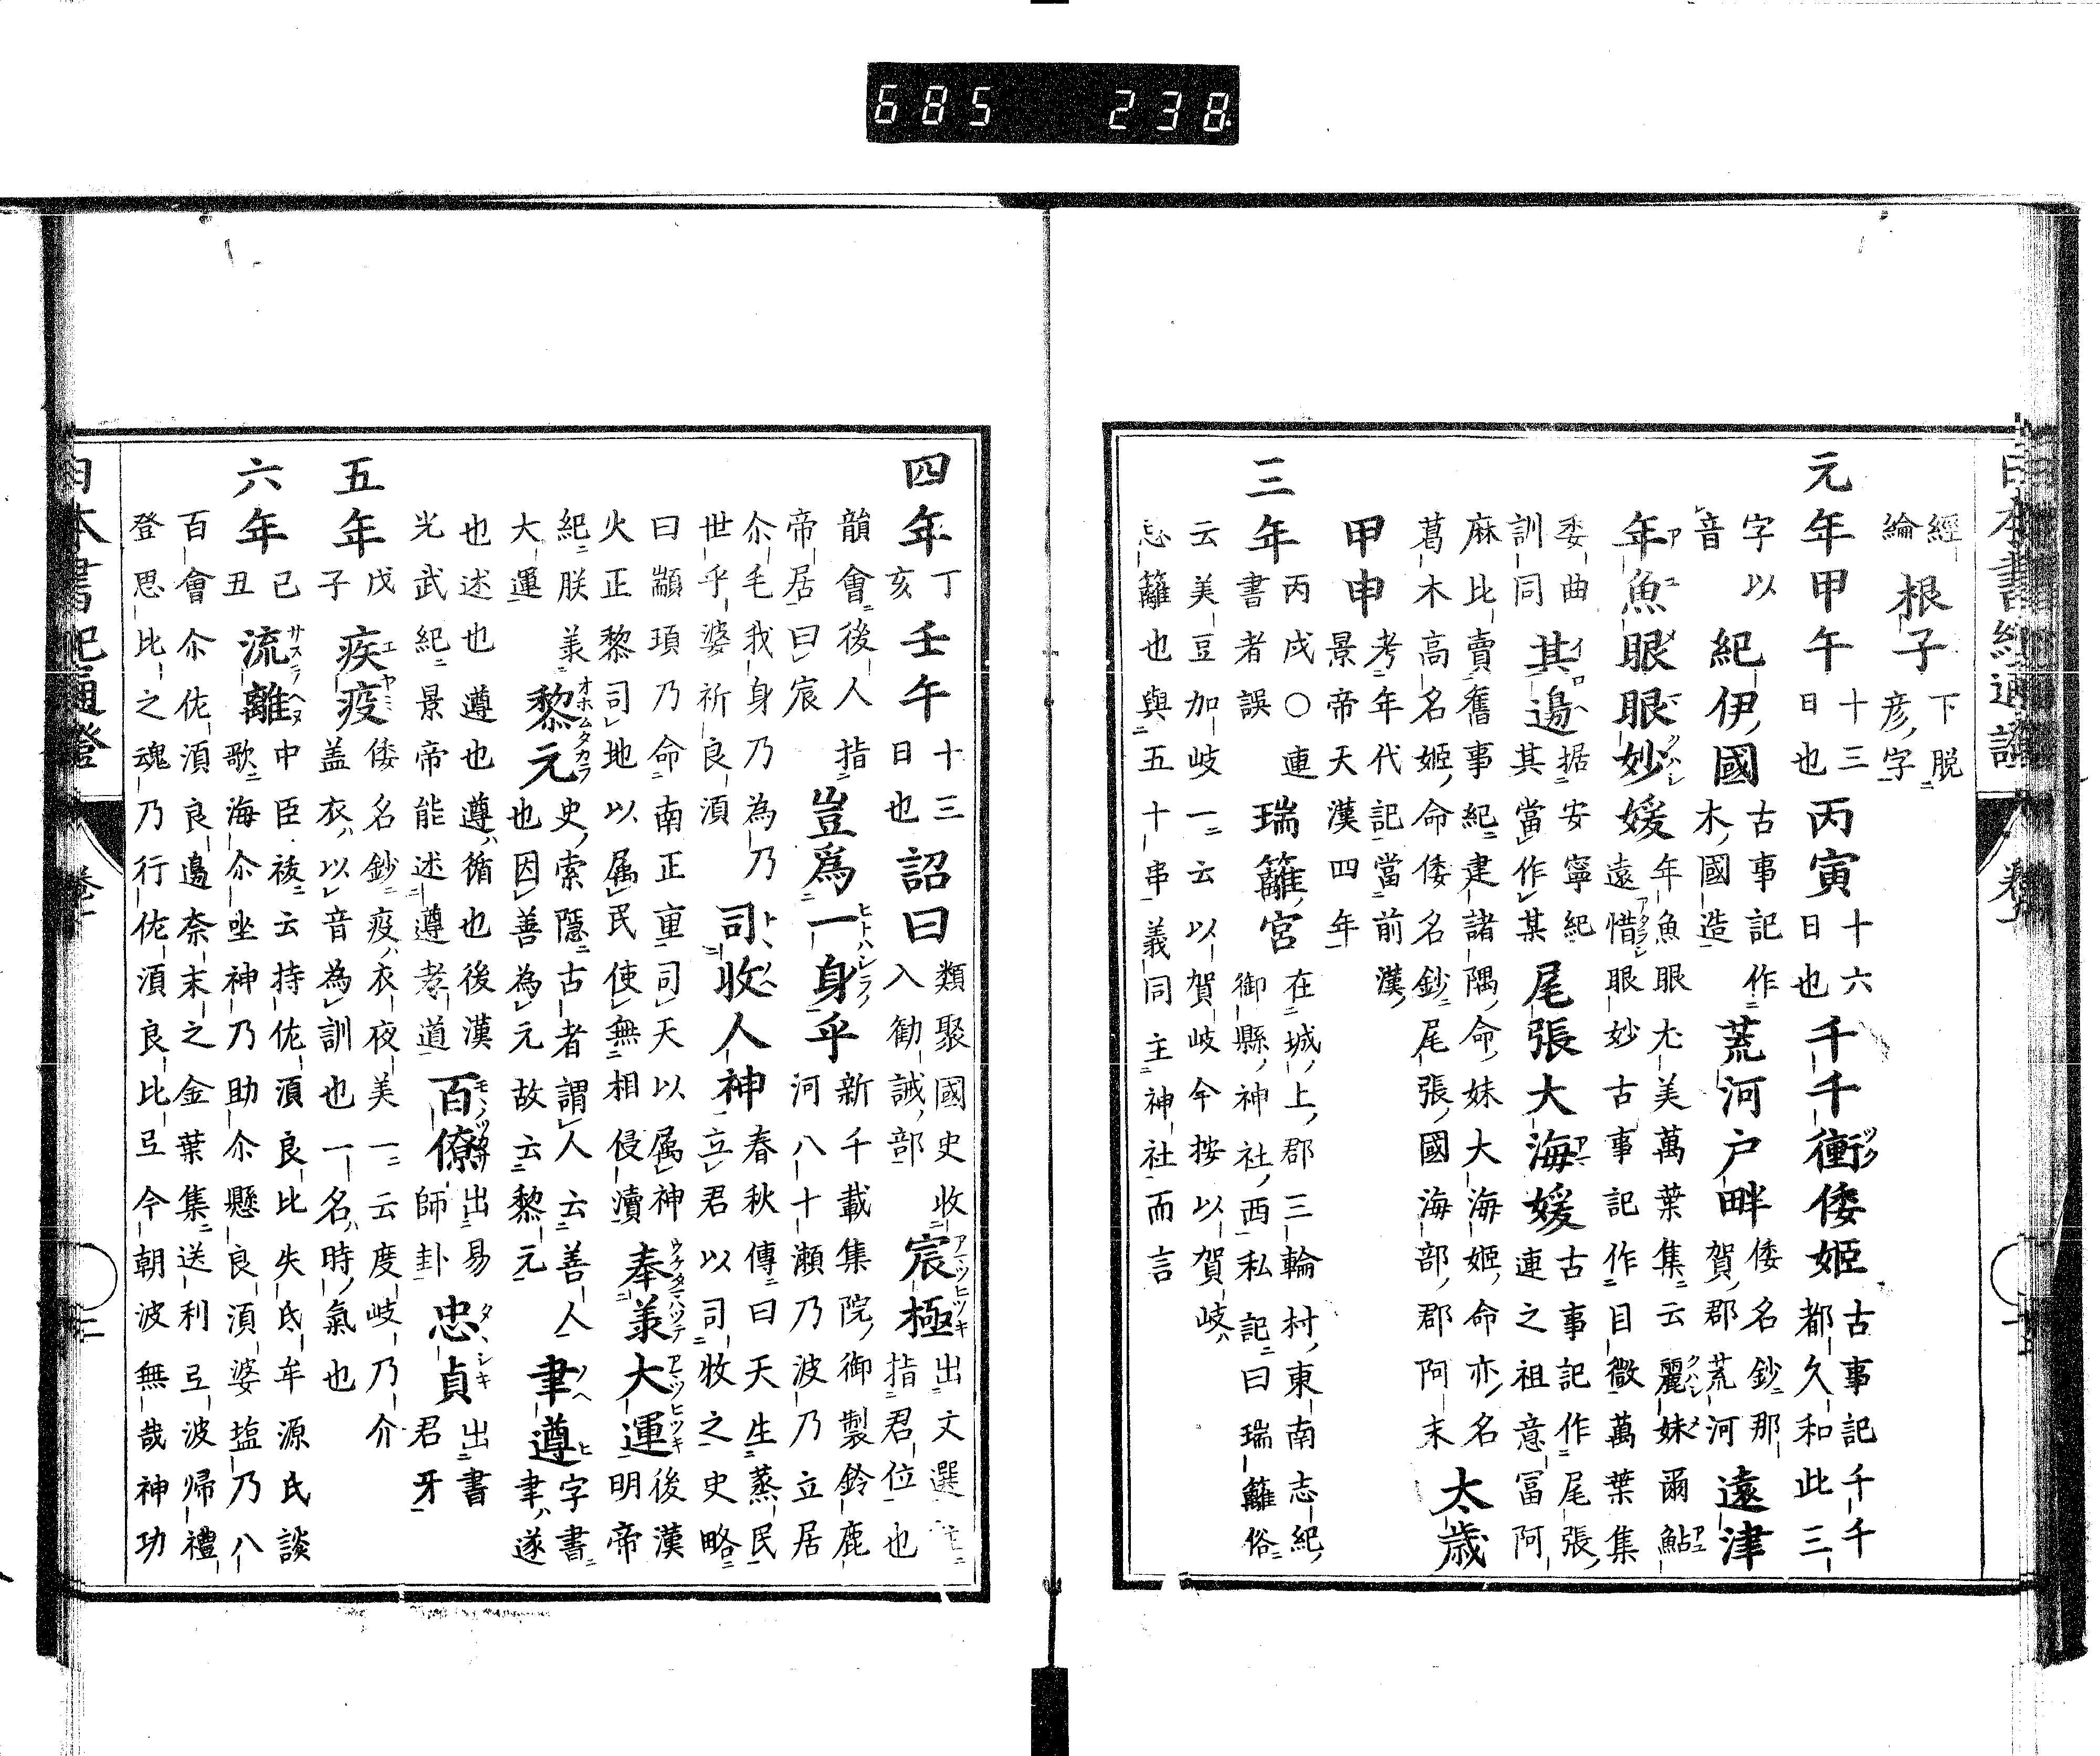 日本書紀通證
經綸根子下脱彦字
元年甲午十三日也丙寅十六日也千千衝倭姫古事記千千都久和此三
字以音紀伊國古事記作木國造荒河戸畔倭名鈔那賀郡荒河遠津
年魚眼眼妙媛年魚眼尢美萬葉集云麗妹爾鮎遠惜眼妙古事記作目微萬葉集
委曲訓同其邊据安寧紀其當作某尾張大海媛古事記作尾張連之祖意冨阿
麻比賣舊事紀建諸隅命妹大海姫命亦名葛木高名姫命倭名鈔尾張國海部郡阿末太歳
甲申考年代記當前漢景帝天漢四年
三年丙戌〇連書者誤瑞籬宮在城上郡三輪村東南志紀御縣神社西私記曰瑞籬俗
云美豆加岐一云以賀岐今按以賀岐忌籬也與五十串義同主神社而言
四年丁亥壬午十三日也詔曰類聚國史收入勸誡部宸極出文選註指君位也
韻會後人指帝居曰宸豈爲一身乎新千載集院御製鈴鹿河八十瀬乃波乃立居
尒毛我身乃為乃世乎婆祈良湏司牧人神春秋傳曰天生蒸民立君以司牧之史略
曰顓頊乃命南正重司天以属神火正黎司地以属民使無相侵瀆奉羕大運後漢明帝
紀朕羕大運黎元史索隠古者謂人云善人也因善為元故云黎元聿遵字書聿遂
也述也遵也遵循也後漢光武紀景帝能述遵孝道百僚出易師卦忠貞出書君牙
五年戊子疾疫倭名鈔疫衣夜美一云度岐乃介盖衣以音為訓也一名時氣也
六年己丑流離中臣祓云持佐湏良比失氐牟源氏談歌海尒坐神乃助尒懸良湏婆塩乃八
百會尒佐湏良邉奈末之金葉集送利弖波帰禮登思比之魂乃行佐湏良比弖今朝波無哉神功
日本書紀通證
685 238